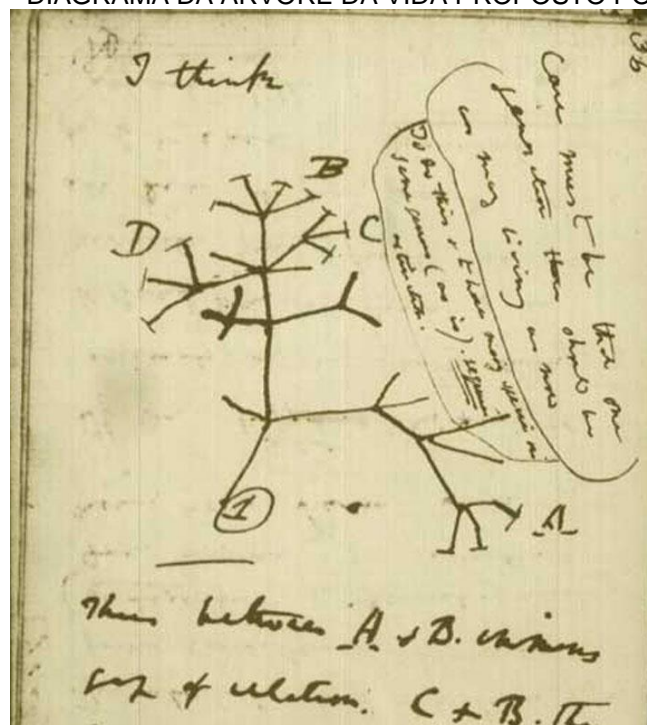 DIAGRAMA DA ÁRVORE DA VIDA PROPOSTO PO
36
I think
Case must be that one
generation then should be
as many living as now
To do this & to have many species in
same genus (as is). requires
extinction.
B
C
D
A
1
Thus between A & B. immense
gap of relation. C & B. The